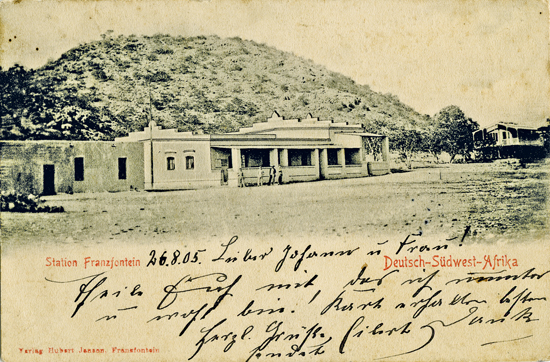 Station Franzfontein 26.8.05. Lieber Johann u Frau!
Deutsch-Südwest-Afrika
Theile Euch mit das ich munter
u wohl bin! Karte erhalten besten Dank
Herzl. Grüße
sendet
Verlag Hubert Janson, Franzfontein